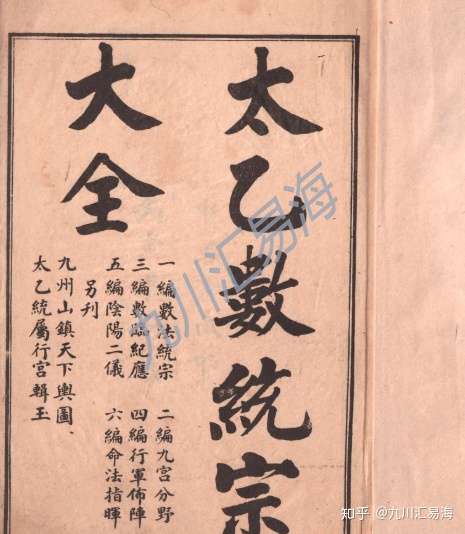 太乙數統宗
大全
一編數法統宗 二編九宮分野
三編數臨紀應 四編行軍佈陣
五編陰陽二儀 六編命法指暉
另刊
九州山鎮天下輿圖、
太乙統屬行宮輯玉
九川汇易海
知乎 @九川汇易海